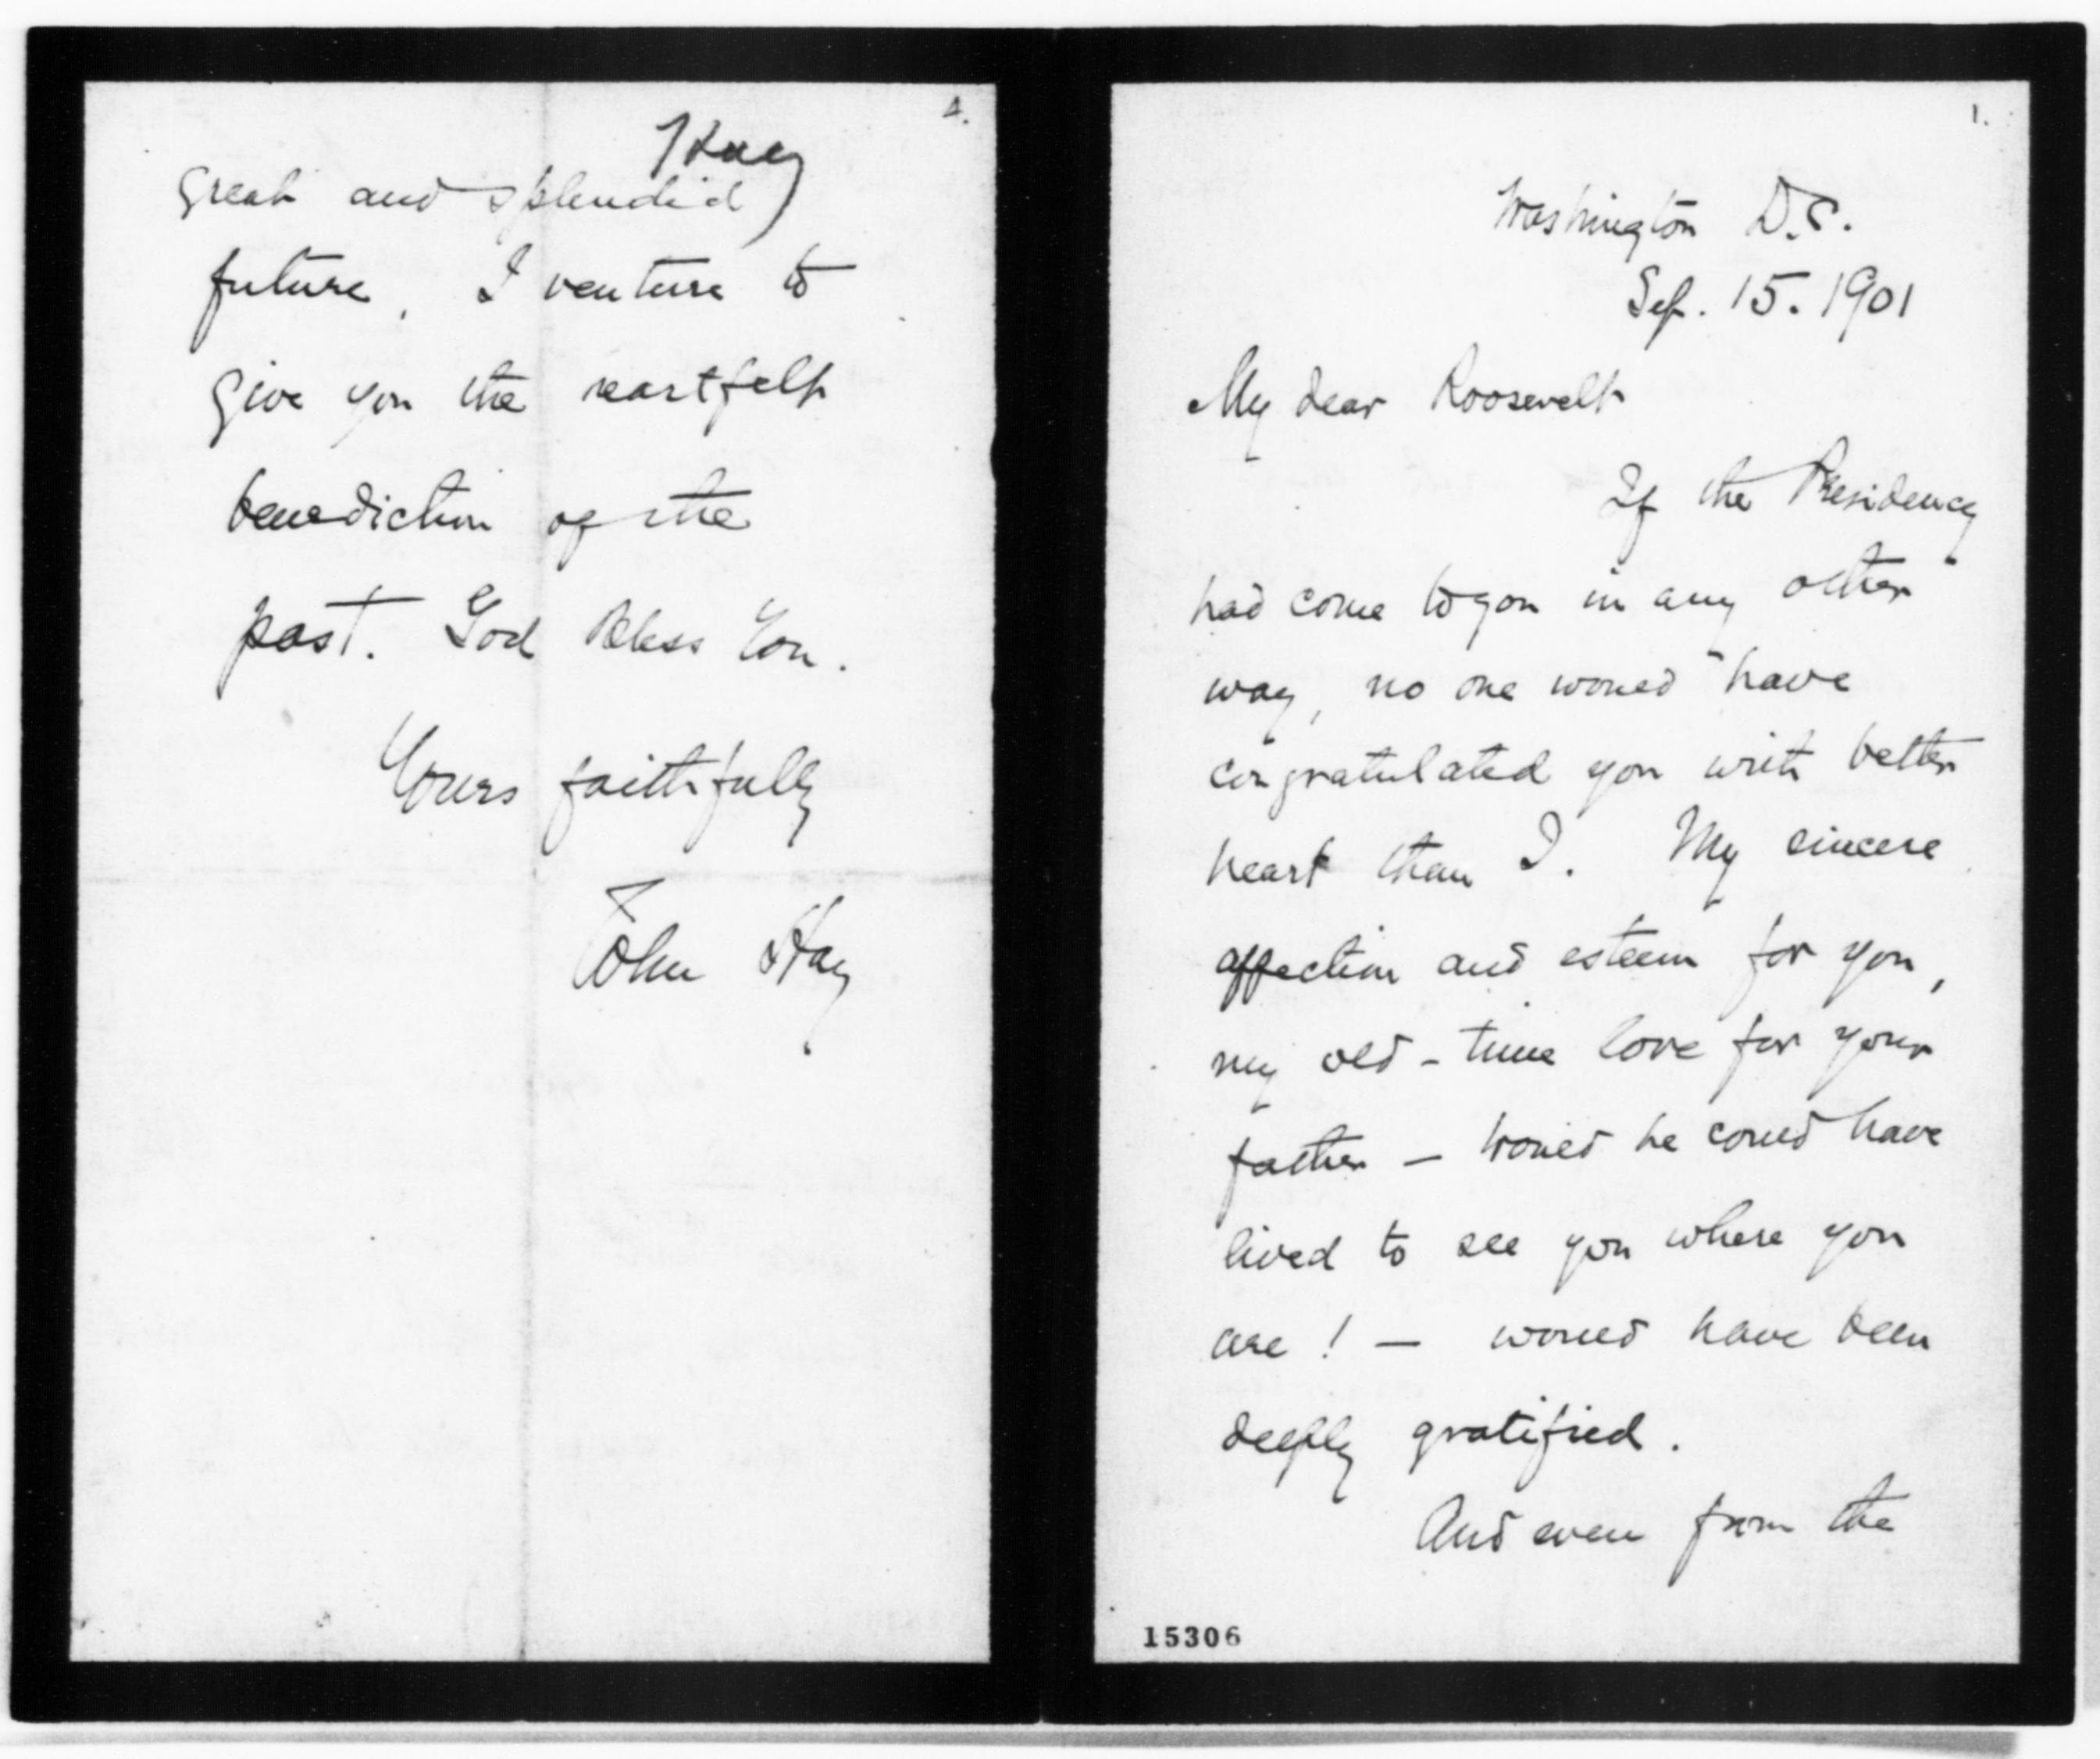 4.
Hay
great and splendid
future, I venture to
give you the heartfelt
benediction of the
past. God Bless You.
Yours faithfully
John Hay
1.
Washington D.C.
Sep. 15. 1901
My dear Roosevelt
If the Presidency
had come to you in any other
way, no one would have
congratulated you with better
heart than I. My sincere
affection and esteem for you,
my old-time love for your
father — would he could have
lived to see you where you
are! — would have been
deeply gratified.
And even from the
15306